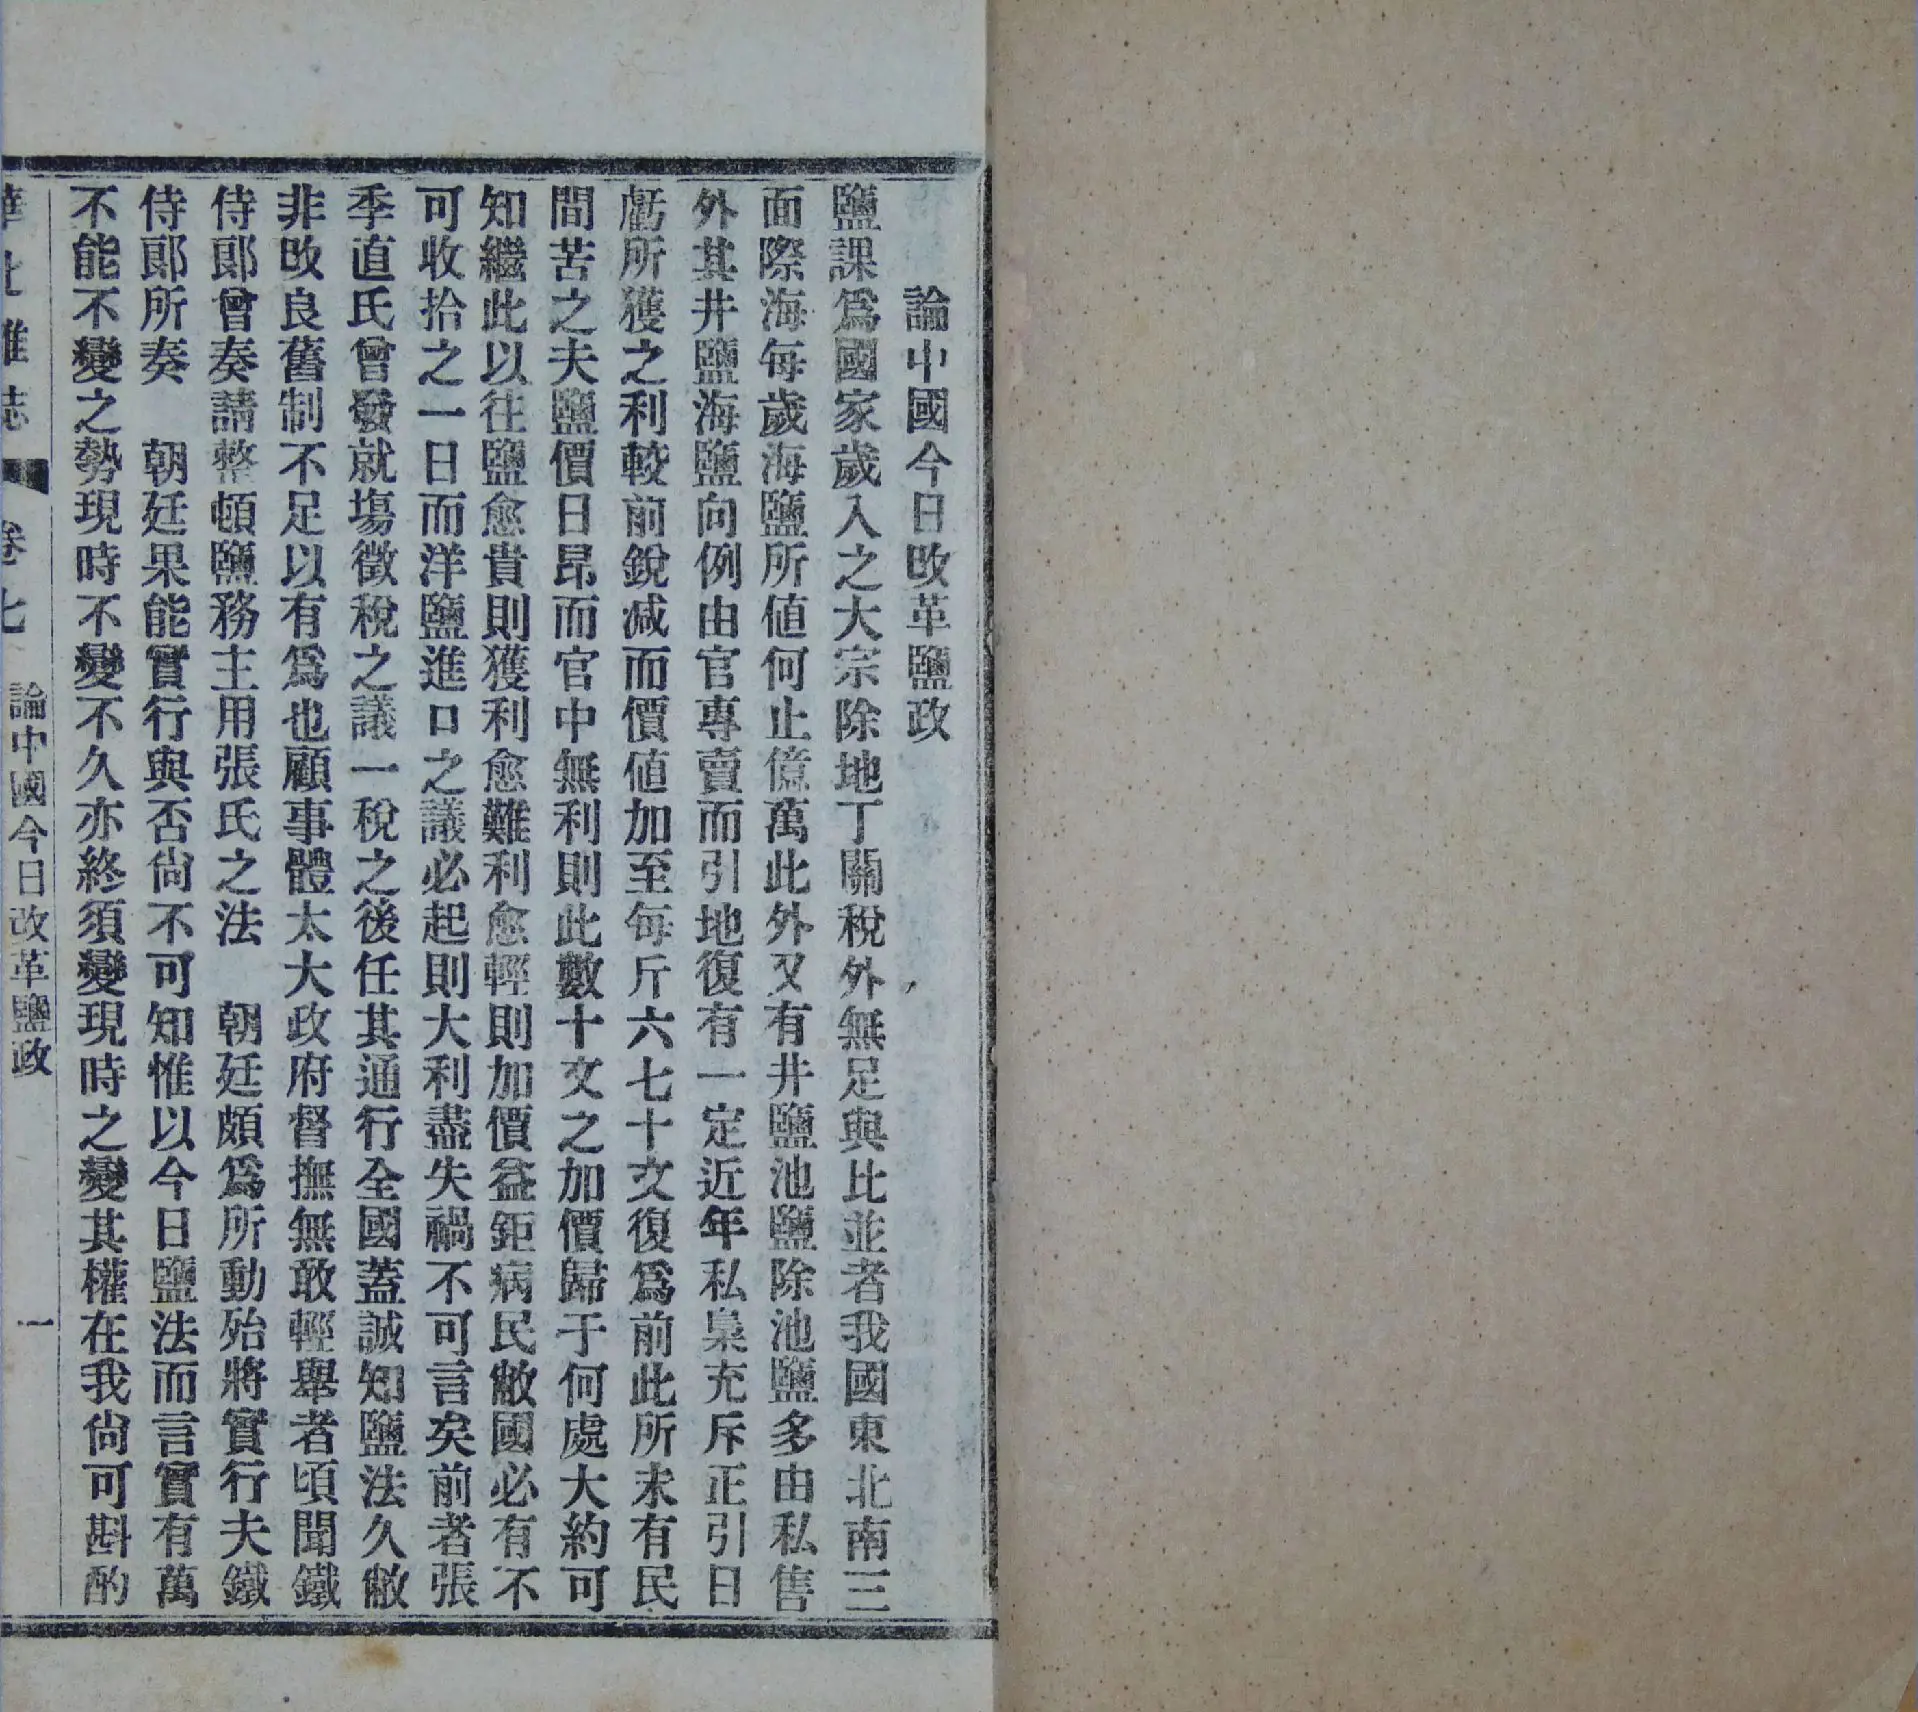 論中國今日改革鹽政
鹽課爲國家歲入之大宗除地丁關稅外無足與比並者我國東北南三
面際海每歲海鹽所値何止億萬此外又有井鹽池鹽除池鹽多由私售
外其井鹽海鹽向例由官專賣而引地復有一定近年私梟充斥正引日
虧所獲之利較前銳減而價値加至每斤六七十文復爲前此所未有民
間苦之夫鹽價日昂而官中無利則此數十文之加價歸于何處大約可
知繼此以往鹽愈貴則獲利愈難利愈輕則加價益鉅病民敝國必有不
可收拾之一日而洋鹽進口之議必起則大利盡失禍不可言矣前者張
季直氏曾發就塲徵稅之議一稅之後任其通行全國蓋誠知鹽法久敝
非改良舊制不足以有爲也顧事體太大政府督撫無敢輕舉者頃聞鐵
侍郞曾奏請整頓鹽務主用張氏之法　朝廷頗爲所動殆將實行夫鐵
侍郞所奏　朝廷果能實行與否尙不可知惟以今日鹽法而言實有萬
不能不變之勢現時不變不久亦終須變現時之變其權在我尙可斟酌
雜誌　卷七　論中國今日改革鹽政　一